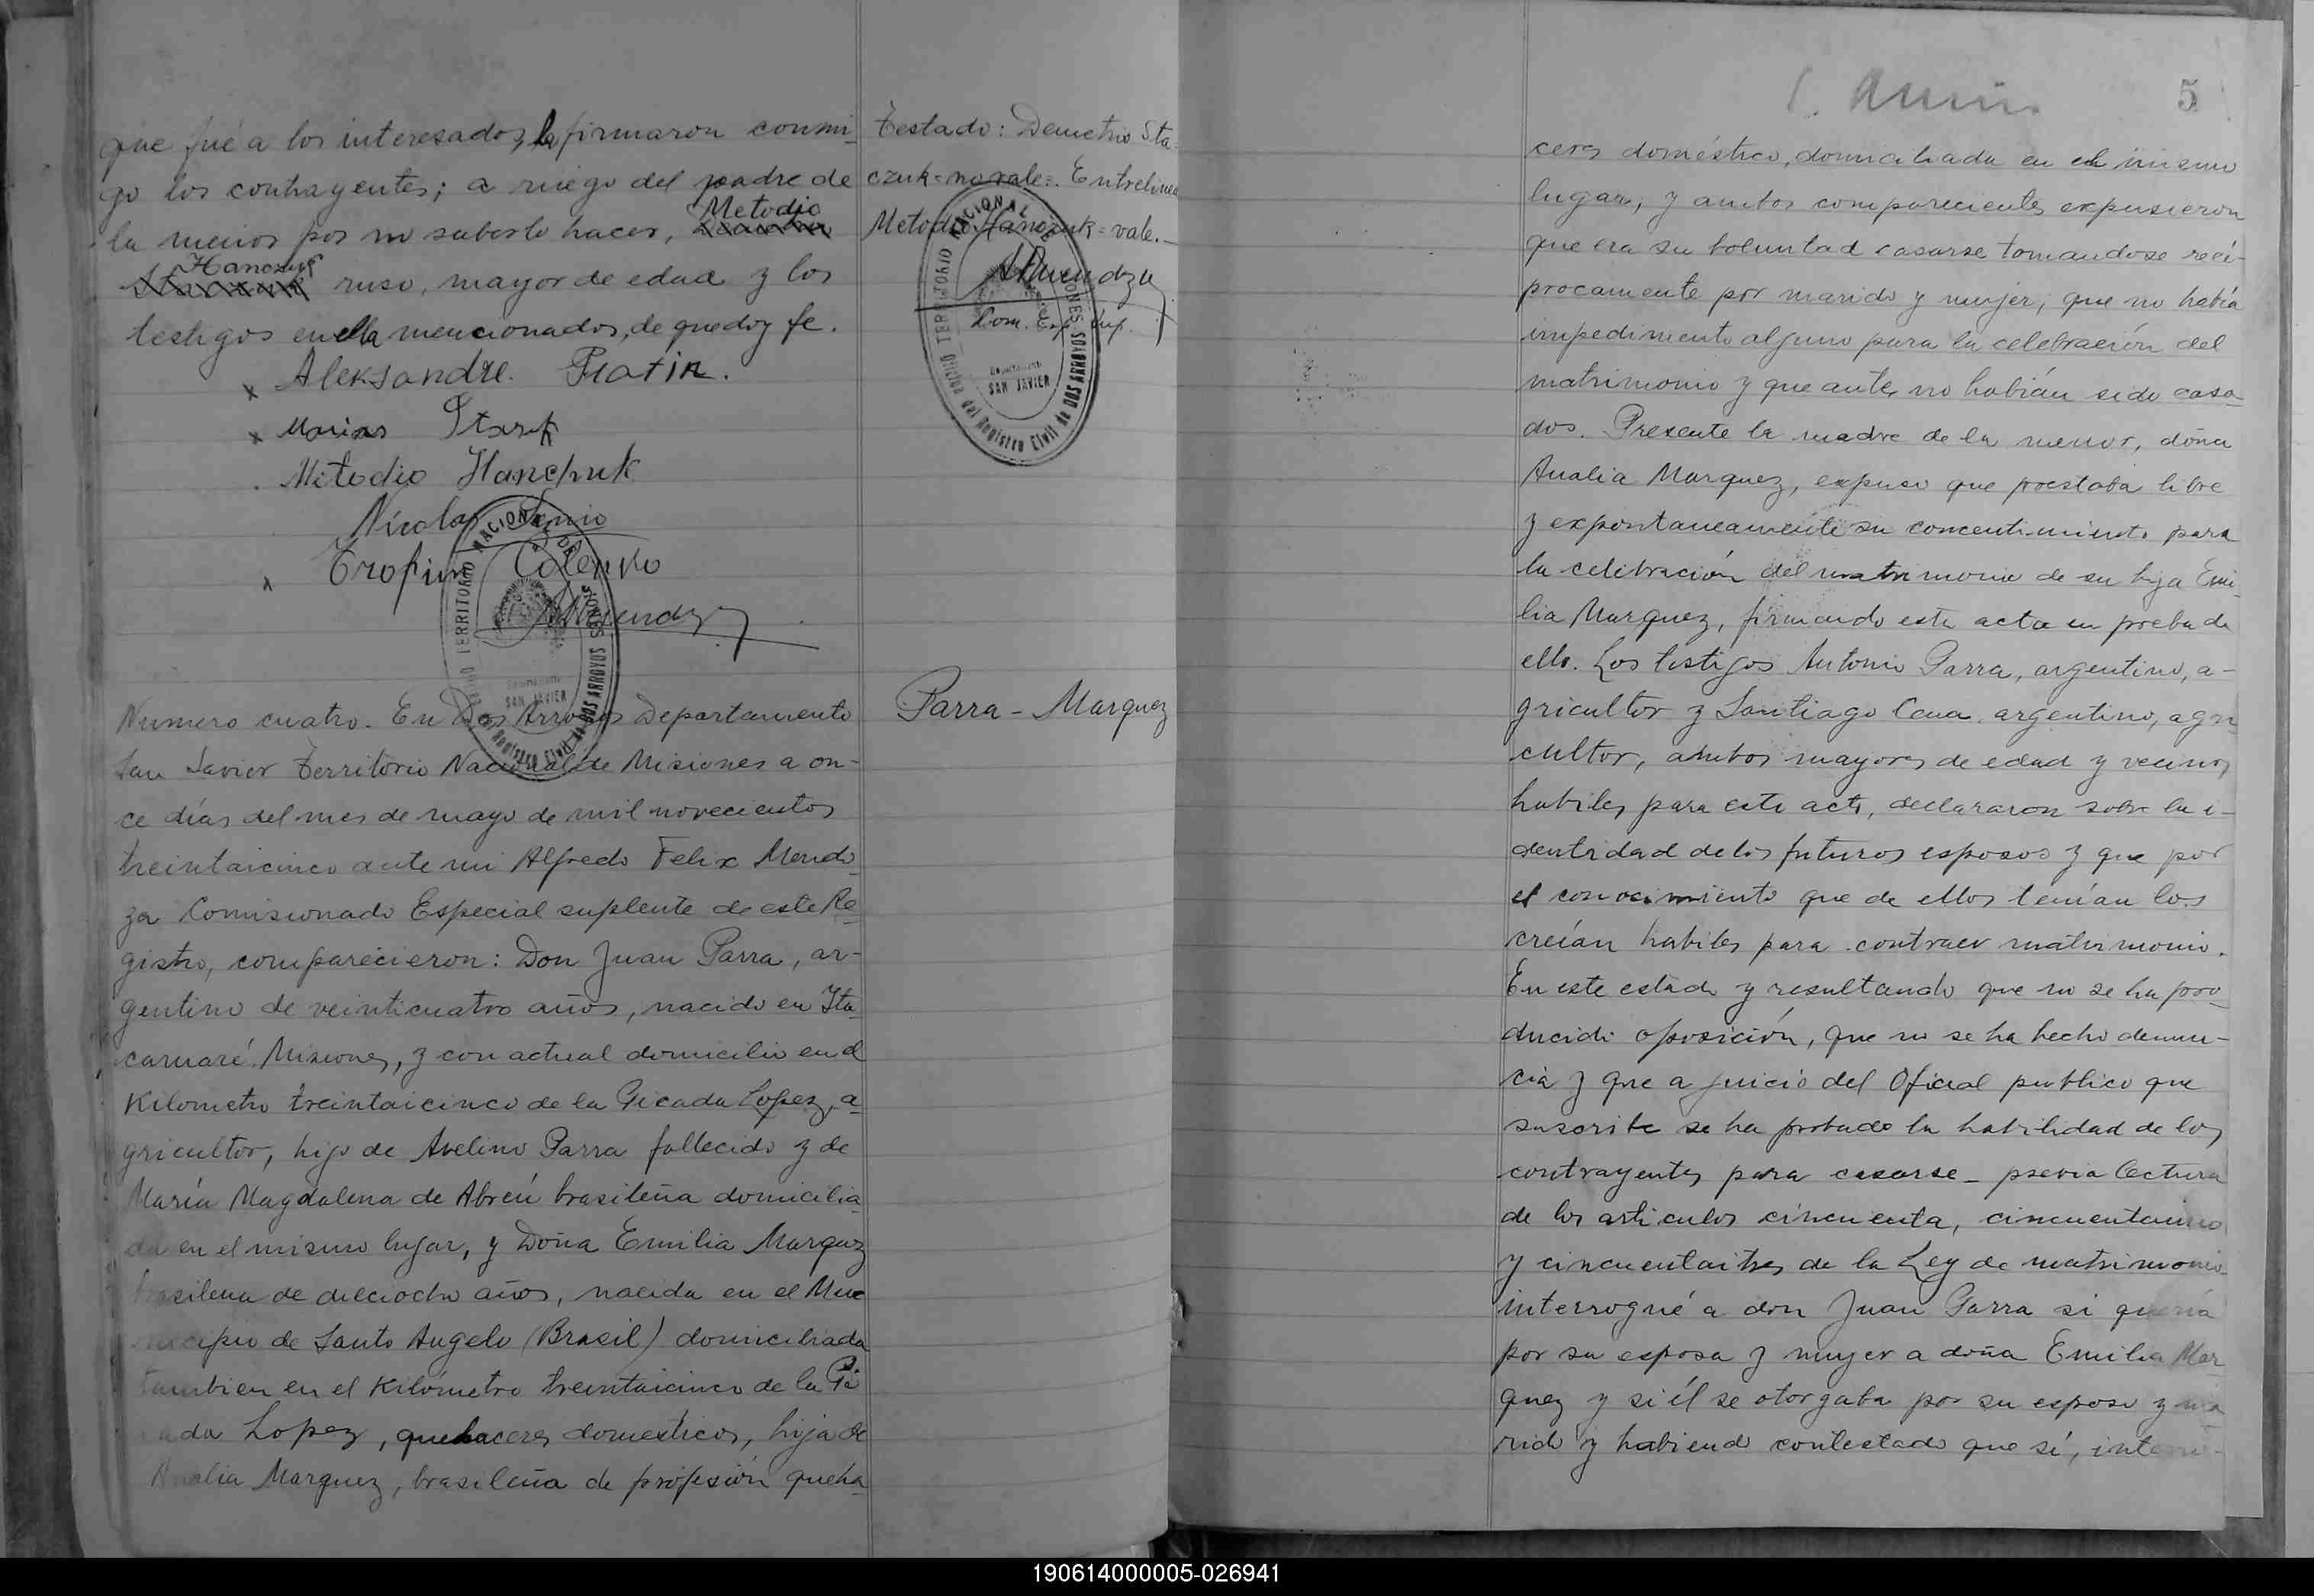 que fué a los interesados, la firmaron conmi-
go los contrayentes; a ruego del padre de
la menor por no saberlo hacer, Metodio
Hanczuk ruso, mayor de edad y los
testigos en ella mencionados, de que doy fe.
Aleksandre.
Marias
Mitodio Hanchuk
Nicolas
Trofim
AMendoza
Testado: Demetrio Sta-
czuk = no vale =. Entrelinea
Metodio Hanczuk = vale. -
AMendoza
Com. Esp. Sup.
TERRITORIO NACIONAL DE MISIONES
Departamento
SAN JAVIER
Oficina del Registro Civil de DOS ARROYOS
TERRITORIO NACIONAL DE MISIONES
Departamento
SAN JAVIER
Registro Civil de DOS ARROYOS
Parra - Marquez
Numero cuatro. En Dos Arroyos Departamento
San Javier Territorio Nacional de Misiones a on-
ce días del mes de mayo de mil novecientos
treintaicinco ante mi Alfredo Felix Mendo-
za Comisionado Especial suplente de este Re-
gistro, comparecieron: Don Juan Parra, ar-
gentino de veinticuatro años, nacido en Ita-
caruaré Misiones, y con actual domicilio en el
Kilometro treintaicinco de la Picada Lopez, a-
gricultor, hijo de Avelino Parra fallecido y de
María Magdalena de Abreú brasileña domicilia-
da en el mismo lugar, y Doña Emilia Marquez
brasilena de dieciocho años, nacida en el Mu
nicipio de Santo Angelo (Brasil) domiciliada
tambien en el Kilómetro treintaicinco de la Pi
cada Lopez, quehaceres domesticos, hija de
Analia Marquez, brasileña de profesión queha-
5
ceres doméstico, domiciliada en el mismo
lugar; y ambos comparecientes expusieron
que era su voluntad casarse tomandose recí-
procamente por marido y mujer; que no había
impedimento alguno para la celebración del
matrimonio y que antes no habían sido casa-
dos. Presente la madre de la menor, doña
Analia Marquez, expuso que prestaba libre
y expontaneamente su concentimiento para
la celebración del matrimonio de su hija Emi-
lia Marquez, firmando esta acta en prueba de
ello. Los testigos Antonio Parra, argentino, a-
gricultor y Santiago argentino, agri-
cultor, ambos mayores de edad y vecinos
habiles para este acto, declararon sobre la i-
dentidad de los futuros esposos y que por
el conocimiento que de ellos tenían los
creían habiles para contraer matrimonio.
En este estado y resultando que no se ha pro-
ducido oposición, que no se ha hecho denun-
cia y que a juicio del Oficial publico que
suscribe se ha probado la habilidad de los
contrayentes para casarse - previa lectura
de los articulos cincuenta, cincuentaiuno
y cincuentaitres de la Ley de matrimonio
interrogué a don Juan Parra si quería
por su esposa y mujer a doña Emilia Mar-
quez y si él se otorgaba por su esposo y ma
rido y habiendo contestado que sí, interro-
190614000005-026941